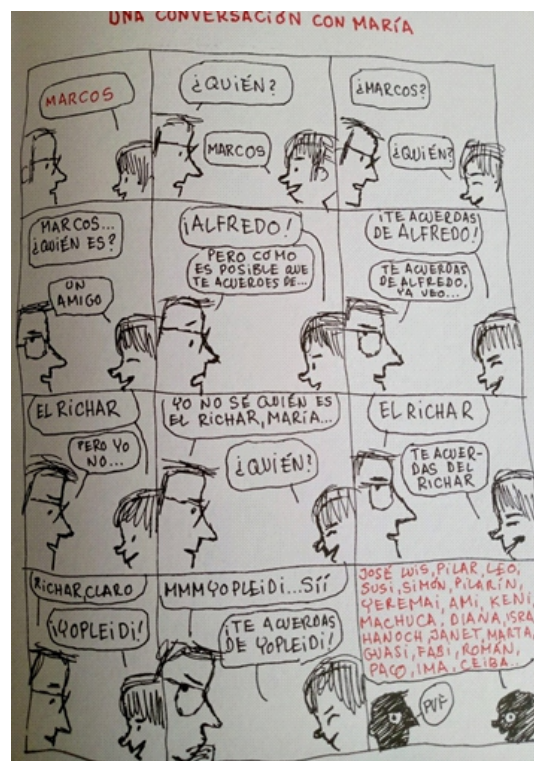 UNA CONVERSACIÓN CON MARÍA
MARCOS
¿QUIÉN?
MARCOS
¿MARCOS?
¿QUIÉN?
MARCOS...
¿QUIÉN ES?
UN
AMIGO
¡ALFREDO!
PERO CÓMO
ES POSIBLE QUE
TE ACUERDES DE...
¡TE ACUERDAS
DE ALFREDO!
TE ACUERDAS
DE ALFREDO,
YA VEO...
EL RICHAR
PERO YO
NO...
YO NO SÉ QUIÉN ES
EL RICHAR, MARÍA...
¿QUIÉN?
EL RICHAR
TE ACUER-
DAS DEL
RICHAR
RICHAR, CLARO
¡YOPLEIDI!
MMM YOPLEIDI... SÍÍ
¡TE ACUERDAS
DE YOPLEIDI!
JOSÉ LUIS, PILAR, LEO,
SUSI, SIMÓN, PILARÍN,
YEREMAI, AMI, KENI,
MACHUCA, DIANA, ISRA
HANOCH, JANET, MARTA,
GUASI, FABI, ROMÁN,
PACO, IMA, CEIBA...
PUF